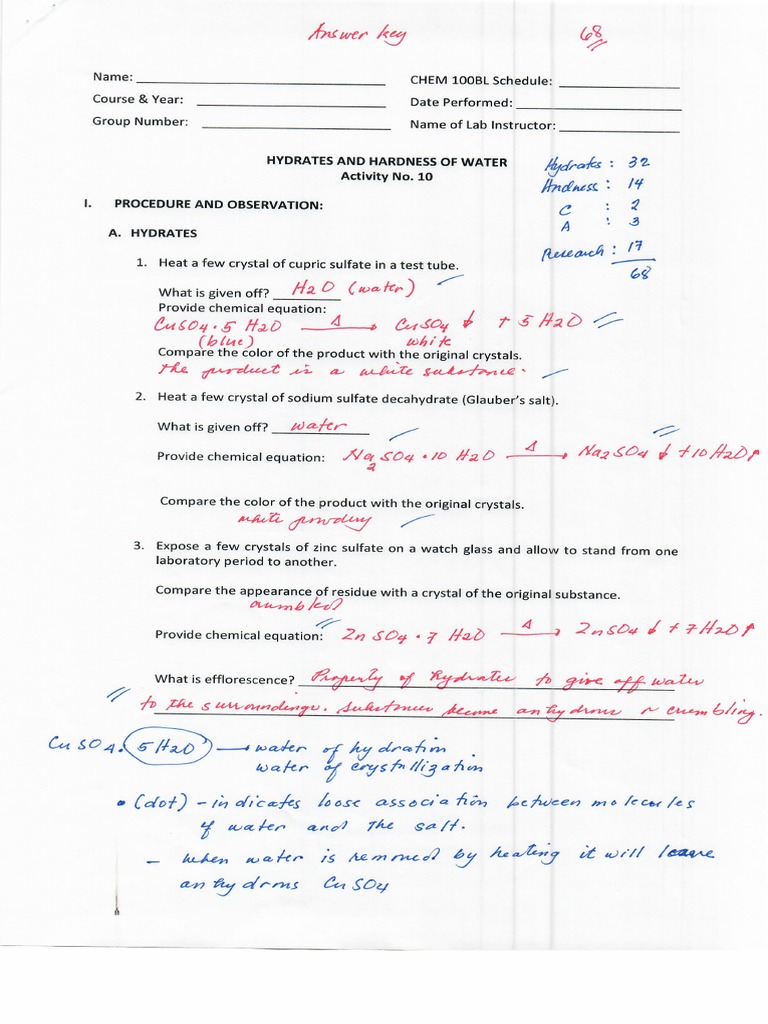 Answer key 68
Name: ____ CHEM 100BL Schedule: ____
Course & Year: ____ Date Performed: ____
Group Number: ____ Name of Lab Instructor: ____
HYDRATES AND HARDNESS OF WATER
Activity No. 10
Hydrates : 32
Hardness : 14
C : 2
A : 3
Research : 17
68
I. PROCEDURE AND OBSERVATION:
A. HYDRATES
1. Heat a few crystal of cupric sulfate in a test tube.
What is given off? H2O (water)
Provide chemical equation:
CuSO4 · 5 H2O —Δ→ CuSO4 ↓ + 5 H2O
(blue) white
Compare the color of the product with the original crystals.
the product is a white substance.
2. Heat a few crystal of sodium sulfate decahydrate (Glauber's salt).
What is given off? water
Provide chemical equation: Na2SO4 · 10 H2O —Δ→ Na2SO4 ↓ + 10 H2O↑
Compare the color of the product with the original crystals.
white powdery
3. Expose a few crystals of zinc sulfate on a watch glass and allow to stand from one
laboratory period to another.
Compare the appearance of residue with a crystal of the original substance.
crumbled
Provide chemical equation: ZnSO4 · 7 H2O —Δ→ ZnSO4 ↓ + 7H2O↑
What is efflorescence? Property of hydrates to give off water
to the surroundings. Substances become anhydrous & crumbling.
CuSO4. 5H2O → water of hydration
water of crystallization
• (dot) - indicates loose association between molecules
of water and the salt.
- when water is removed by heating it will leave
anhydrous CuSO4